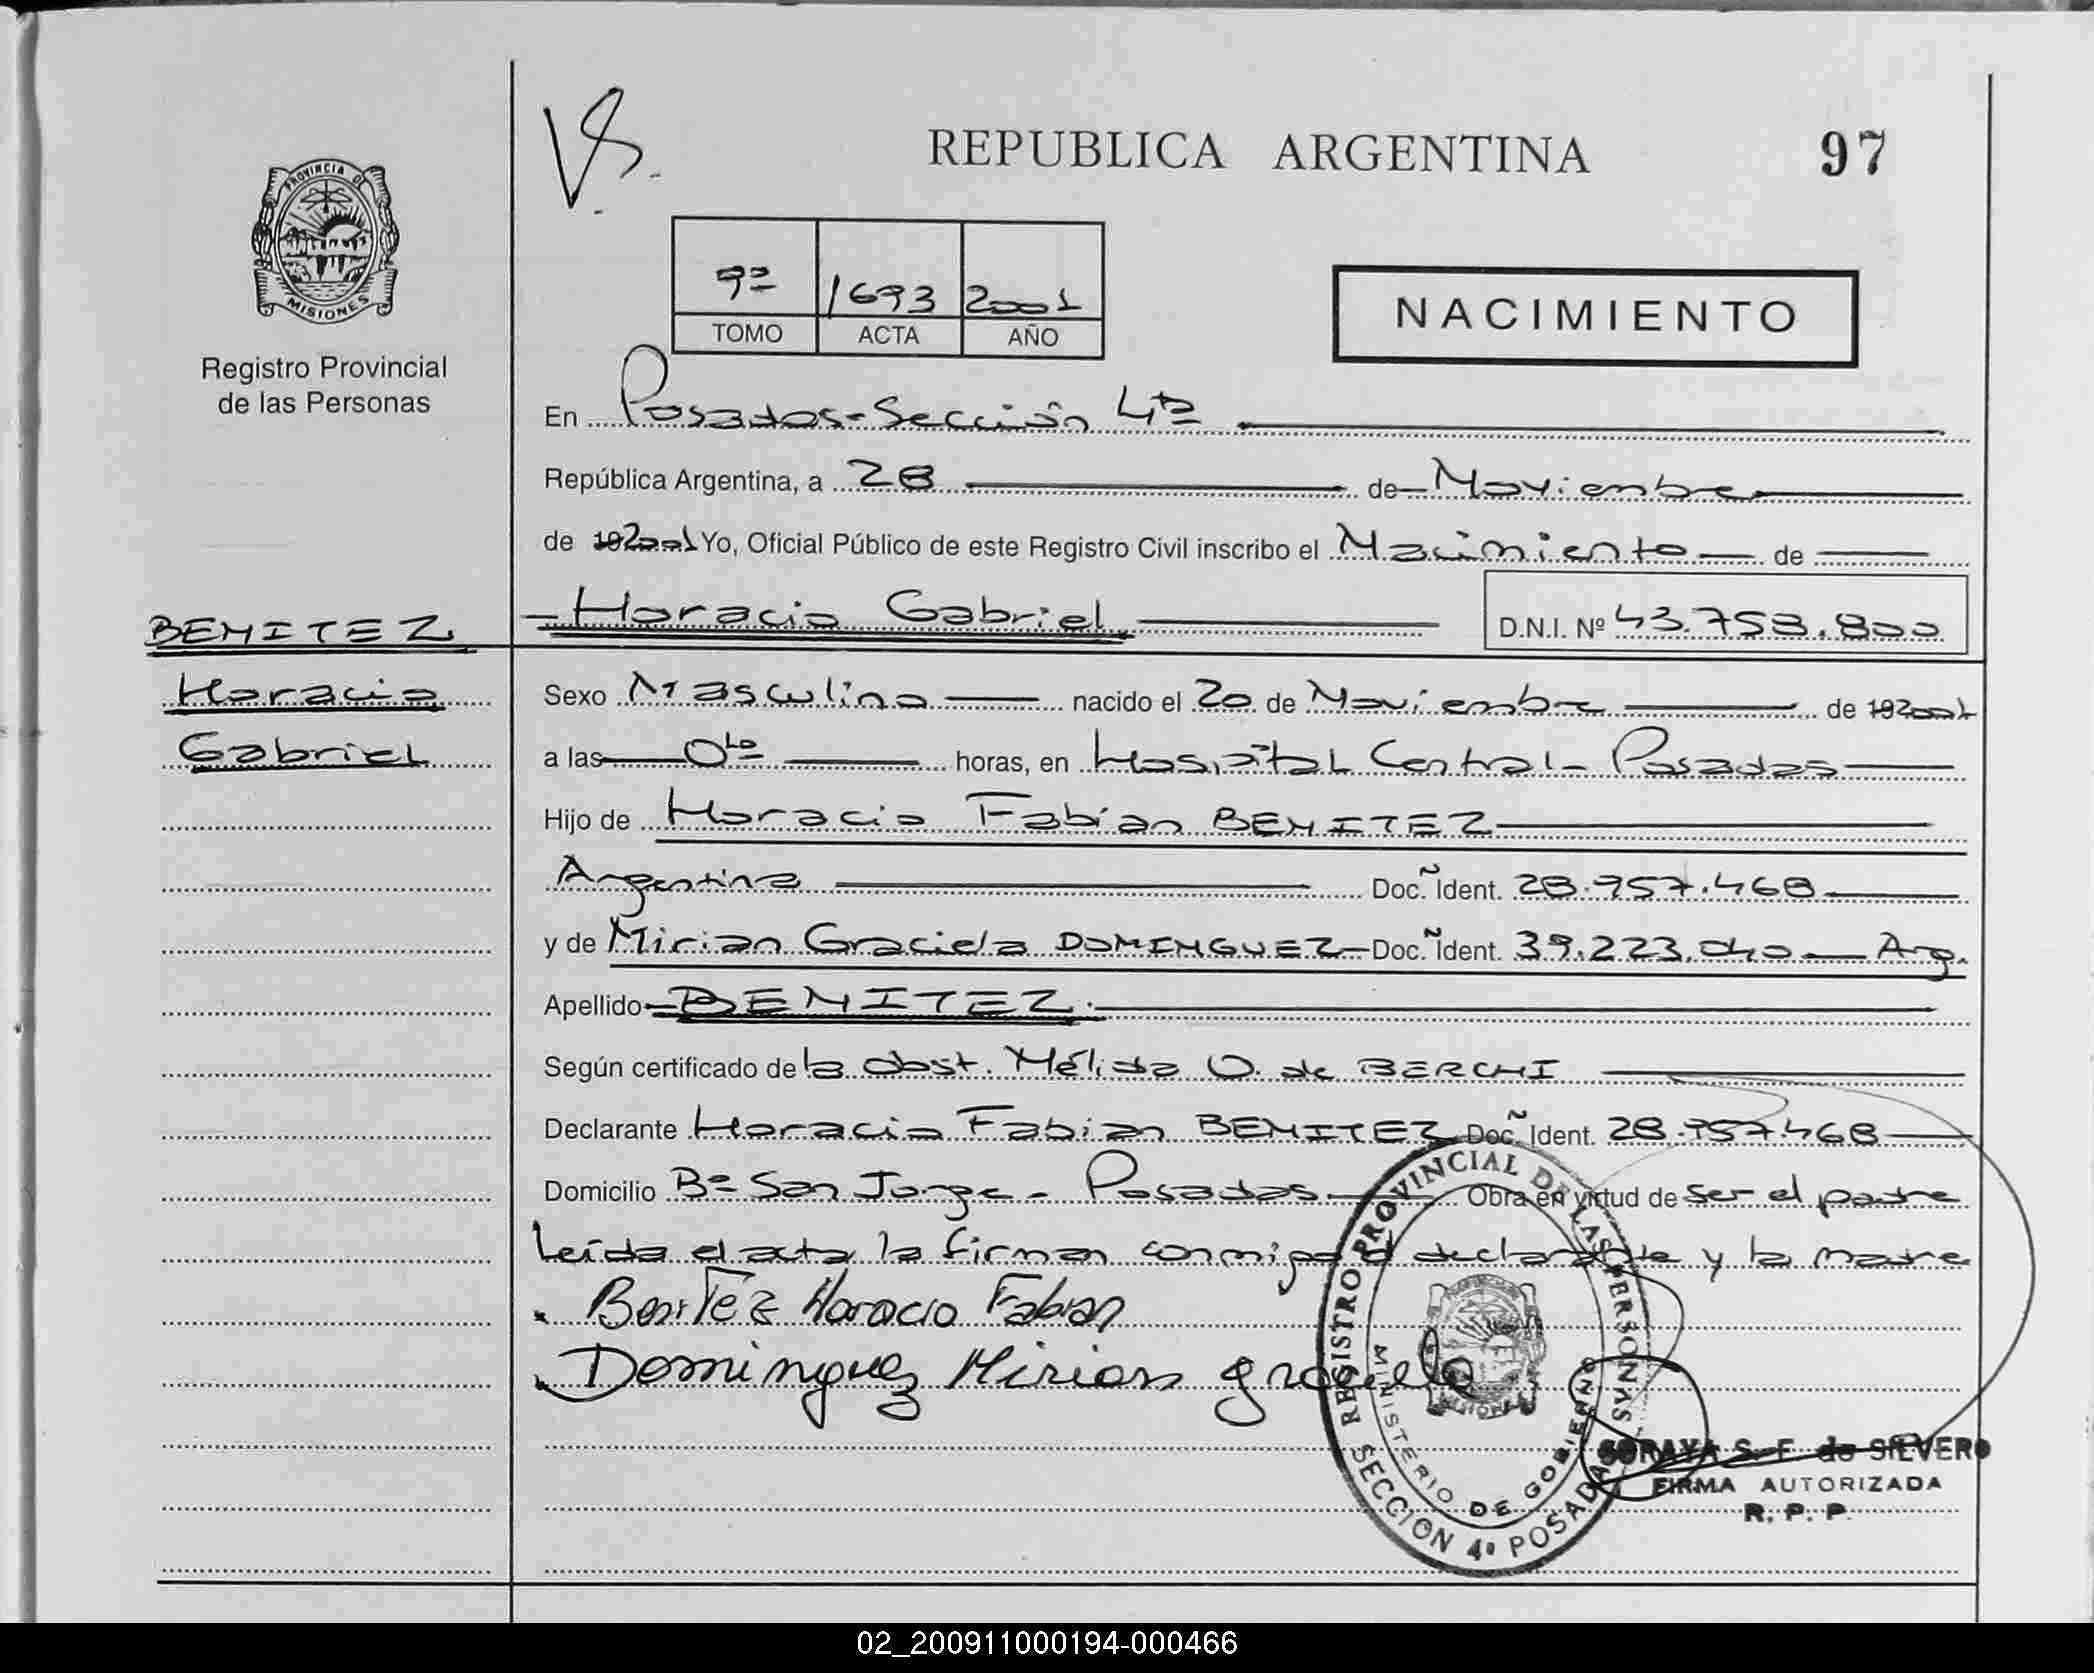 V°S.
REPUBLICA ARGENTINA
97
PROVINCIA DE
MISIONES
Registro Provincial
de las Personas
9º 1693 2001
TOMO ACTA AÑO
NACIMIENTO
En Posadas-Sección 4ta
República Argentina, a 28 de Noviembre
de 192001 Yo, Oficial Público de este Registro Civil inscribo el Nacimiento de
BENITEZ
Horacio Gabriel D.N.I. Nº 43.758.800
Horacio
Gabriel
Sexo Masculino nacido el 20 de Noviembre de 192001
a las 0 horas, en Hospital Central - Posadas
Hijo de Horacio Fabián BENITEZ
Argentina Doc. Ident. 28.957.468
y de Mirian Graciela DOMINGUEZ - Doc. Ident. 39.223.040 Arg.
Apellido BENITEZ.
Según certificado de la Obst. Nélida O. de BERCHI
Declarante Horacio Fabian BENITEZ Doc. Ident. 28.957.468
Domicilio Bº San Jorge - Posadas Obra en virtud de ser el padre
Leída el acta la firman conmigo el declarante y la madre
Benitez Horacio Fabian
Dominguez Mirian graciela
REGISTRO PROVINCIAL DE LAS PERSONAS
MINISTERIO DE GOBIERNO
SECCION 4ª POSADAS
SORAYA S. F. de SILVERO
FIRMA AUTORIZADA
R. P. P.
02_200911000194-000466